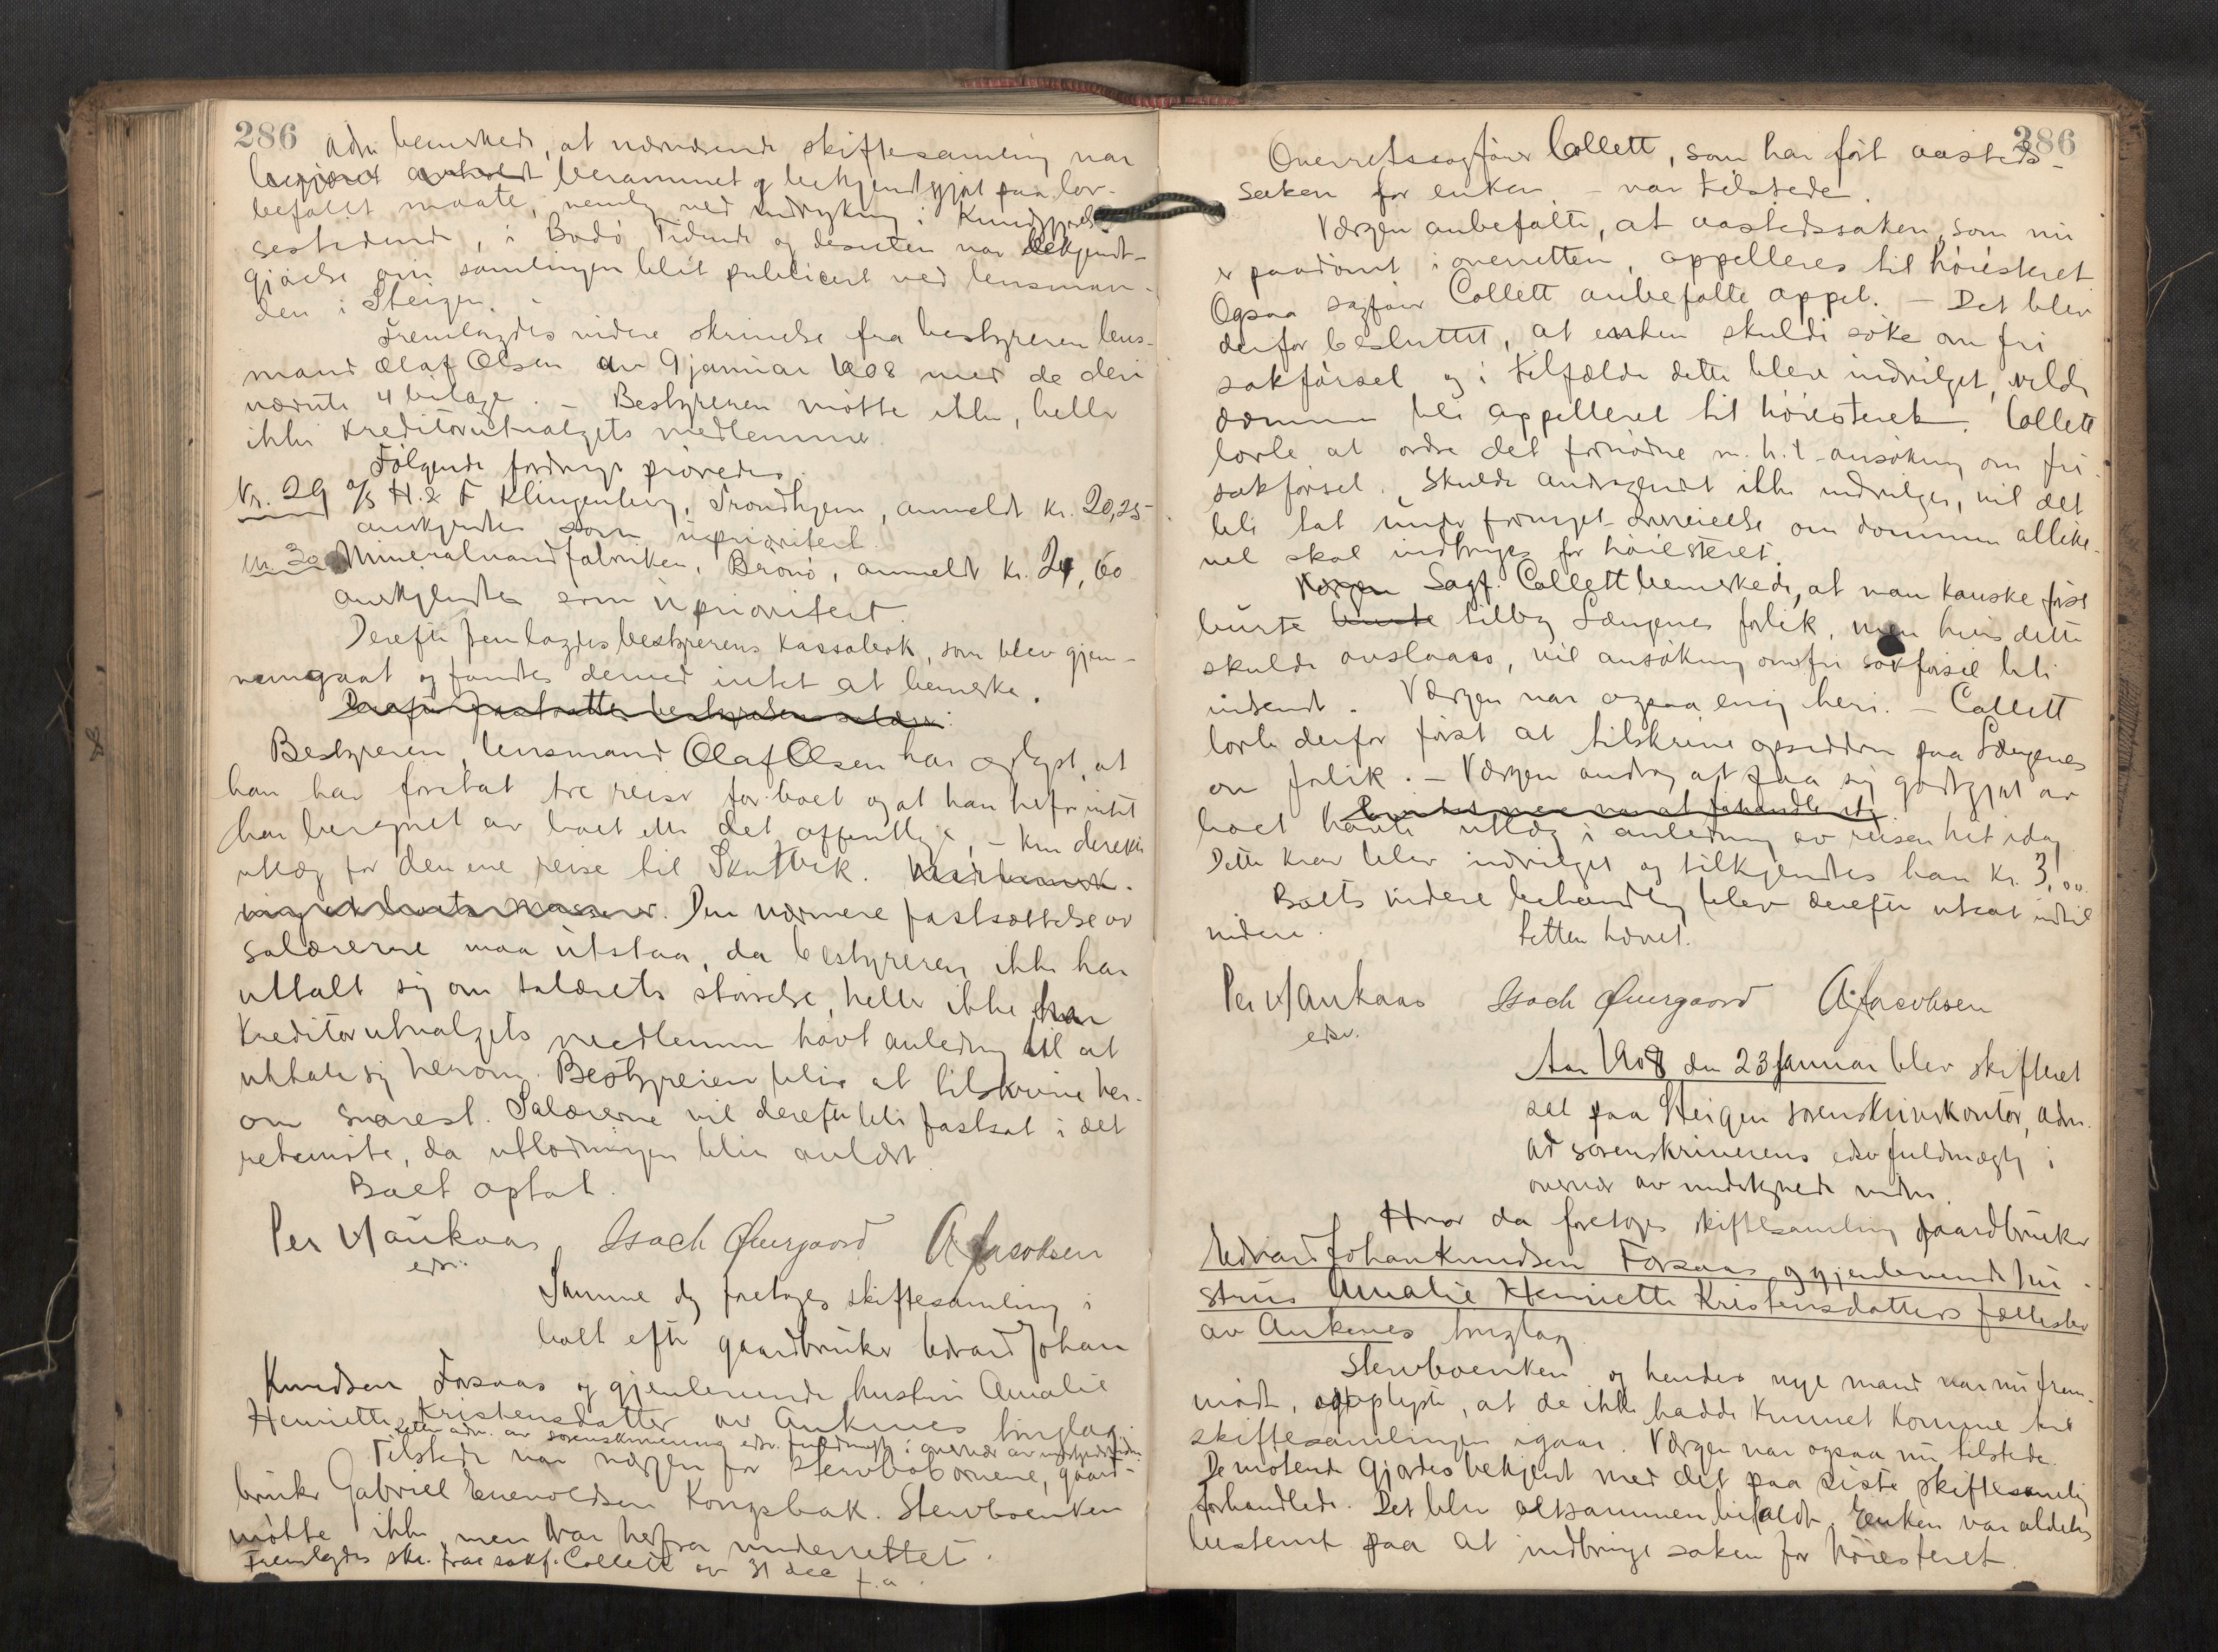 286
Adm bemerkede, at nærværende skiftesamling var
berammet og bekjendtgjort paa lov-
befalet maate, nemlig ved indrykning i Kundgjørel-
sestidende, i Bodö Tidende og desuten var bekjendt-
gjörelse om samlingen blit publicert ved lensman-
den i Steigen. -
Fremlagdes videre skrivelse fra bestyreren lens-
mand Olaf Olsen av 9 januar 1908 med de deri
nævnte 4 bilage. - Bestyreren mötte ikke, heller
ikke kreditorutvalgets medlemmer.
Fölgende fordringer prövedes
Nr. 29 A/S H. & F Klingenberg, Trondhjem, anmeldt kr. 20,25
anerkjendtes som uprioritert.
Nr. 30 Mineralvandfabriken, Brönö, anmeldt kr. 24,60
anerkjendtes som uprioritert.
Derefter fremlagdes bestyrerens kassabok, som blev gjen-
nemgaat og fandtes dermed intet at bemerke.
Derefter fastsattes bestyrelsens salær.
Bestyreren, lensmand Olaf Olsen har oplyst, at
han har foretat tre reiser for boet og at han herfor intet
har beregnet av boet eller det offentlige, - kun direkte
utlæg for den ene reise til Skutvik.
Den nærmere fastsættelse av
salærerne maa utstaa, da bestyreren ikke har
uttalt sig om salærets störrelse, heller ikke har
kreditorutvalgets medlemmer havt anledning til at
uttale sig herom. Bestyreren blir at tilskrive her-
om snarest. Salærerne vil derefter bli fastsat i det
retsmöte, da utlodningen blir avlidt
Boet optat.
Per Maukaas Isach Overgaard A Jacobsen
edsv.
Samme dag foretoges skiftesamling i
boet efter gaardbruker Edvard Johan
Knudsen Forsaas og gjenlevende hustru Amalie
Henriette Kristensdatter av Ankenes tinglag.
Retten adm. av sorenskriverens edsv. fuldmægtig i overvær av undertegnede vidner
Tilstede var værgen for stervbobörnene, gaard-
bruker Gabriel Enevoldsen Kongsbak. Stervboenken
mötte ikke, men var herfra underrettet.
Fremlagdes skr. fra sakf. Collett av 31 dec f.a.
286
Overretssagförer Collett, som har fört aasteds-
saken for enken - var tilstede.
Værgen anbefalte, at aastedssaken, som nu
er paadömt i overretten, appelleres til höiesteret
Ogsaa sagförer Collett anbefalte appel. - Det blev
derfor besluttet, at enken skulde söke om fri
sakförsel og i tilfælde dette blev indvilget, vilde
dommen bli appelleret til höiesteret. Collett
lovte at ordne det fornödne m. h. t. ansökning om fri
sakförsel. Skulde andragendet ikke indvilges, vil det
bli tat under fornyet overveielse om dommen allike-
vel skal indbringes for höiesteret.
Værgen Sagf. Collett bemerkede, at man kanske först
burte burte tilby Længenes forlik, men hvis dette
skulde avslaaes, vil ansökning om fri sakförsel bli
indsendt. Værgen var ogsaa enig heri. - Collett
lovte derfor först at tilskrive opsidderne paa Længenes
om forlik. - Værgen androg at faa sig godtgjort av
Da intet mere var at forhandle
boet havte utlæg i anledning av reisen hit idag
Dette krav blev indvilget og tilkjendtes han kr. 3,00.
Boets videre behandling blev derefter utsat indtil
videre. Retten hævet.
Per Maukaas Isach Overgaard A. Jacobsen
edsv.
Aar 1908 den 23 Januar blev skifteret
sat paa Steigen sorenskriverkontor, adm.
av sorenskriverens edsv fuldmægtig i
overvær av undertegnede vidner.
Hvor da foretoges skiftesamling gaardbruker
Edvard Johan Knudsen Forsaas og gjenlevende hu-
strus Amalie Henriette Kristensdatters fællesbo
av Ankenes tinglag
Stervboenken og hendes nye mand var nu frem-
mödt, og oplyste, at de ikke hadde kunnet komme til
skiftesamlingen igaar. Værgen var ogsaa nu tilstede.
De mötende gjordes bekjent med det paa siste skiftesamling
forhandlede. Det blev altsammen bifaldt. Enken var aldeles
bestemt paa at indbringe saken for höiesteret.